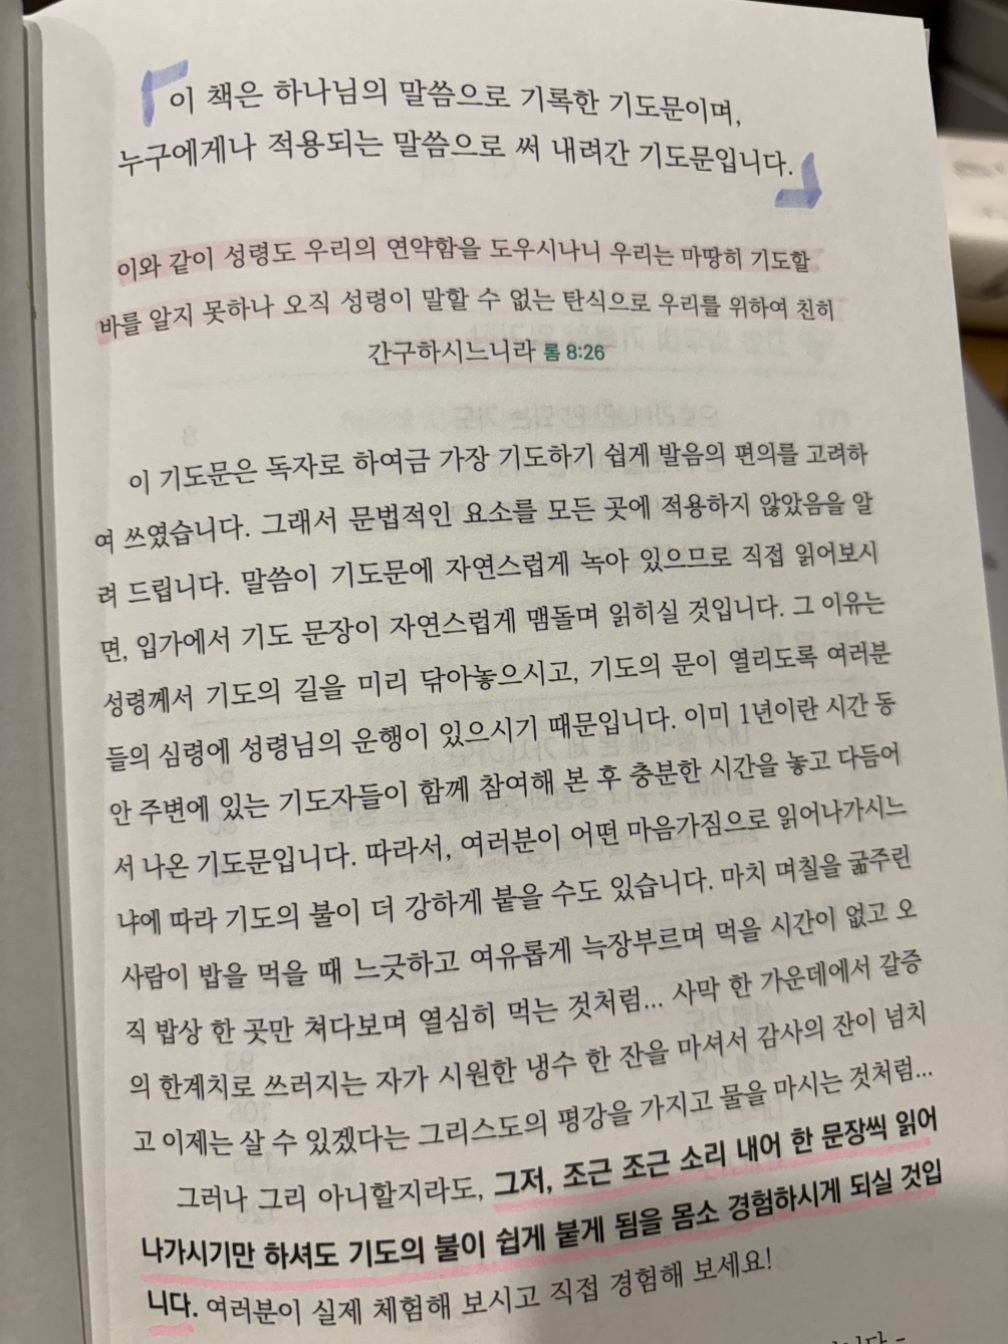 이 책은 하나님의 말씀으로 기록한 기도문이며,
누구에게나 적용되는 말씀으로 써 내려간 기도문입니다.
이와 같이 성령도 우리의 연약함을 도우시나니 우리는 마땅히 기도할
바를 알지 못하나 오직 성령이 말할 수 없는 탄식으로 우리를 위하여 친히
간구하시느니라 롬 8:26
이 기도문은 독자로 하여금 가장 기도하기 쉽게 발음의 편의를 고려하
여 쓰였습니다. 그래서 문법적인 요소를 모든 곳에 적용하지 않았음을 알
려 드립니다. 말씀이 기도문에 자연스럽게 녹아 있으므로 직접 읽어보시
면, 입가에서 기도 문장이 자연스럽게 맴돌며 읽히실 것입니다. 그 이유는
성령께서 기도의 길을 미리 닦아놓으시고, 기도의 문이 열리도록 여러분
들의 심령에 성령님의 운행이 있으시기 때문입니다. 이미 1년이란 시간 동
안 주변에 있는 기도자들이 함께 참여해 본 후 충분한 시간을 놓고 다듬어
서 나온 기도문입니다. 따라서, 여러분이 어떤 마음가짐으로 읽어나가시느
냐에 따라 기도의 불이 더 강하게 붙을 수도 있습니다. 마치 며칠을 굶주린
사람이 밥을 먹을 때 느긋하고 여유롭게 늑장부르며 먹을 시간이 없고 오
직 밥상 한 곳만 쳐다보며 열심히 먹는 것처럼... 사막 한 가운데에서 갈증
의 한계치로 쓰러지는 자가 시원한 냉수 한 잔을 마셔서 감사의 잔이 넘치
고 이제는 살 수 있겠다는 그리스도의 평강을 가지고 물을 마시는 것처럼...
그러나 그리 아니할지라도, 그저, 조근 조근 소리 내어 한 문장씩 읽어
나가시기만 하셔도 기도의 불이 쉽게 붙게 됨을 몸소 경험하시게 되실 것입
니다. 여러분이 실제 체험해 보시고 직접 경험해 보세요!